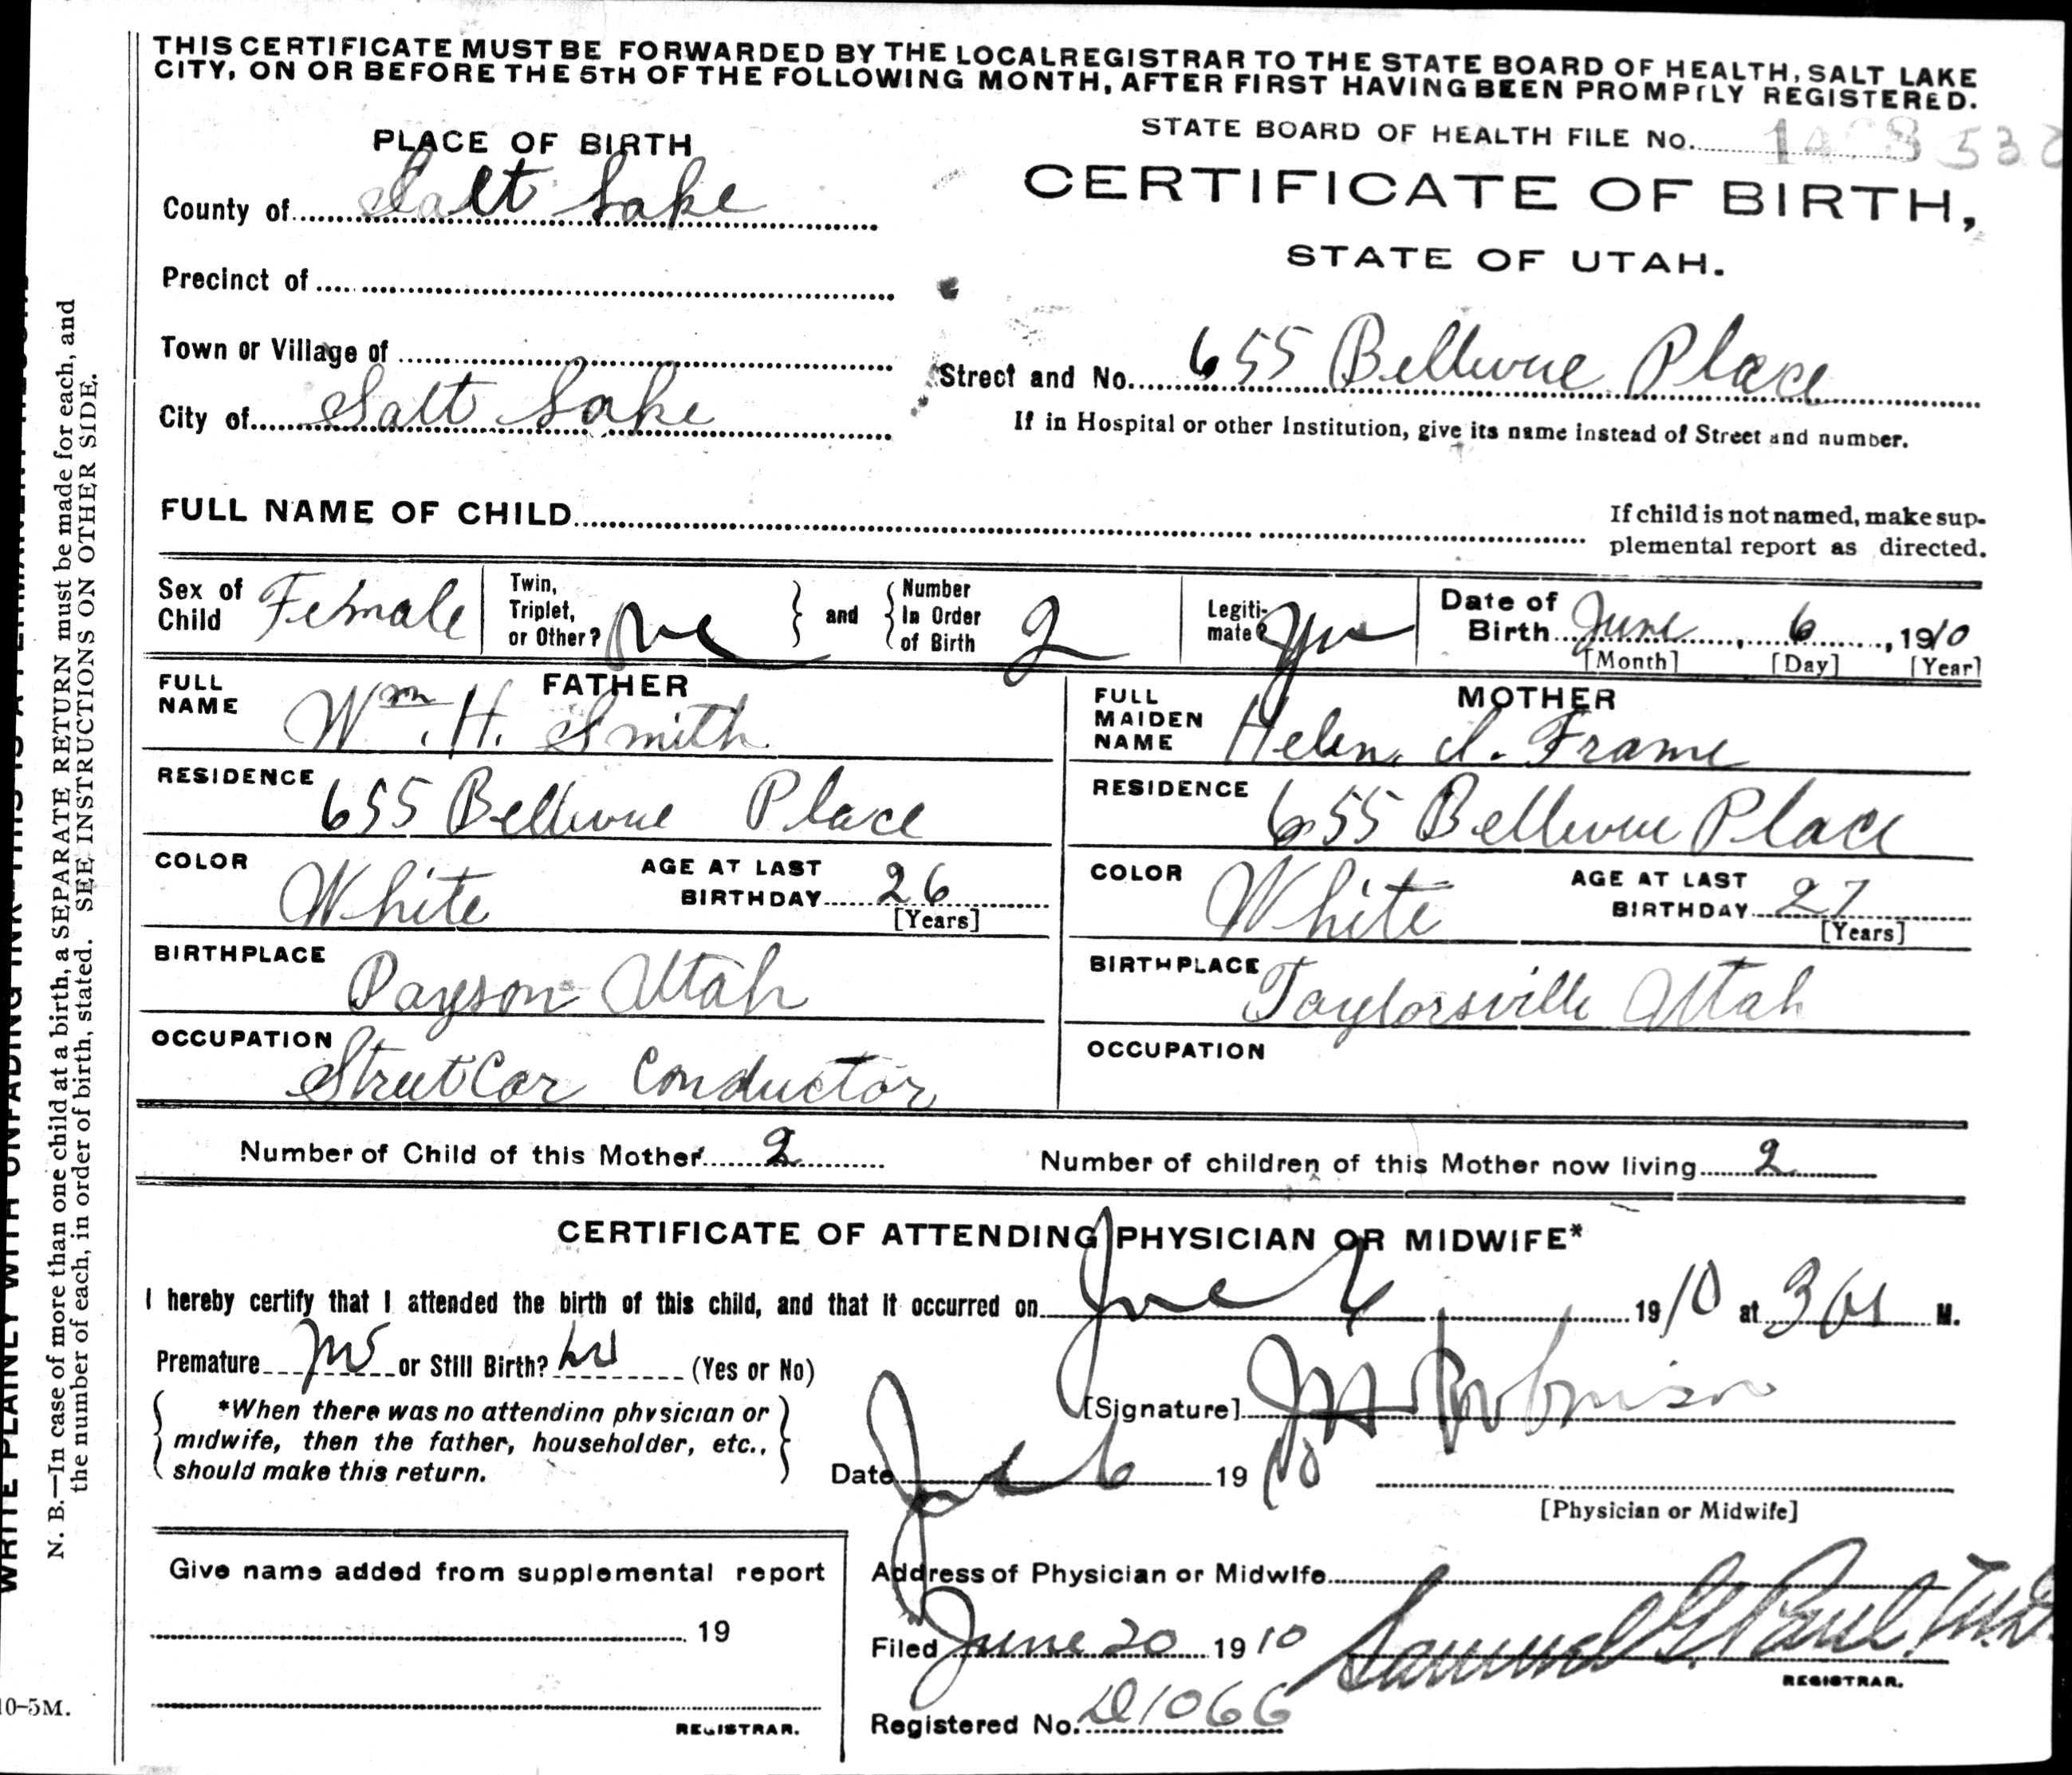 THIS CERTIFICATE MUST BE FORWARDED BY THE LOCAL REGISTRAR TO THE STATE BOARD OF HEALTH, SALT LAKE
CITY, ON OR BEFORE THE 5TH OF THE FOLLOWING MONTH, AFTER FIRST HAVING BEEN PROMPTLY REGISTERED.
STATE BOARD OF HEALTH FILE No.
PLACE OF BIRTH
CERTIFICATE OF BIRTH,
County of Salt Lake
STATE OF UTAH.
Precinct of
Town or Village of
Street and No. 655 Bellevue Place
City of Salt Lake
If in Hospital or other Institution, give its name instead of Street and number.
FULL NAME OF CHILD
If child is not named, make sup-
plemental report as directed.
Sex of Child Female
Twin, Triplet, or Other?
and
Number In Order of Birth 2
Legiti-mate? yes
Date of Birth June 6, 1910
[Month] [Day] [Year]
FATHER
FULL NAME Wm. H. Smith
RESIDENCE 655 Bellevue Place
COLOR White
AGE AT LAST BIRTHDAY 26
[Years]
BIRTHPLACE Payson Utah
OCCUPATION Street Car Conductor
MOTHER
FULL MAIDEN NAME Helen I. Frame
RESIDENCE 655 Bellevue Place
COLOR White
AGE AT LAST BIRTHDAY 27
[Years]
BIRTHPLACE Taylorsville Utah
OCCUPATION
Number of Child of this Mother 2
Number of children of this Mother now living 2
CERTIFICATE OF ATTENDING PHYSICIAN OR MIDWIFE*
I hereby certify that I attended the birth of this child, and that it occurred on June 6 1910 at 3 M.
Premature no or Still Birth? no (Yes or No)
*When there was no attending physician or
midwife, then the father, householder, etc.,
should make this return.
[Signature] Robinson
Date June 6 1910
[Physician or Midwife]
Give name added from supplemental report
19
REGISTRAR.
Address of Physician or Midwife
Filed June 20 1910 Samuel G. Paul, M.D.
REGISTRAR.
Registered No. D1066
N. B.—In case of more than one child at a birth, a SEPARATE RETURN must be made for each, and
the number of each, in order of birth, stated. SEE INSTRUCTIONS ON OTHER SIDE.
10-5M.